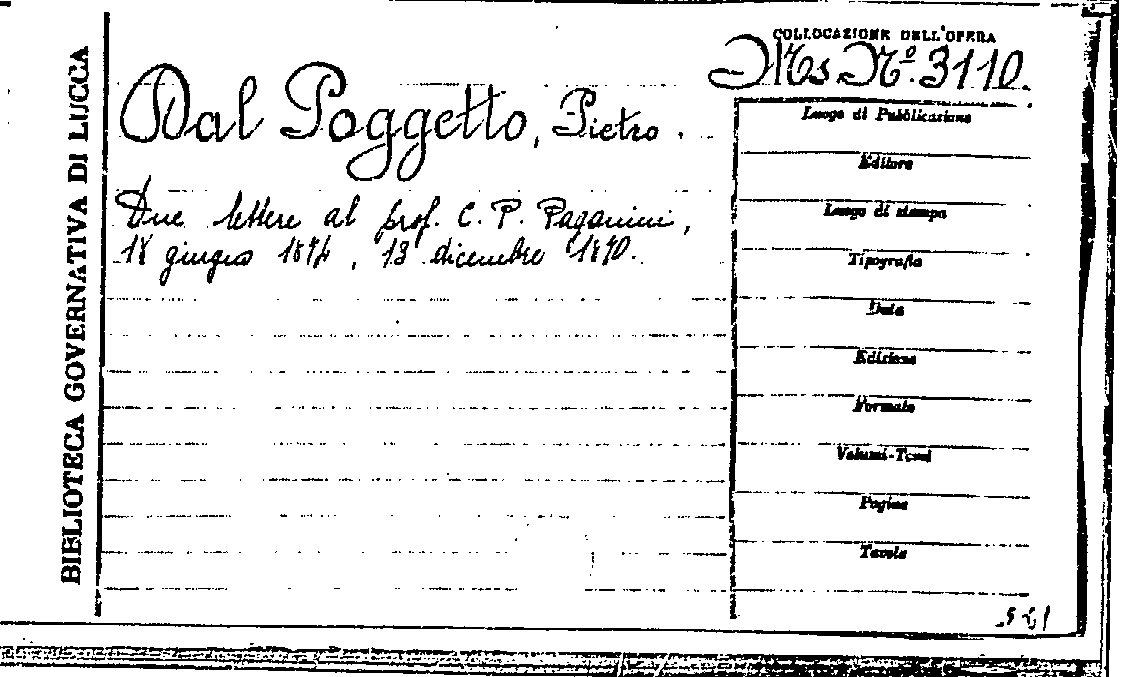 BIBLIOTECA GOVERNATIVA DI LUCCA
COLLOCAZIONE DELL'OPERA
Ms Nº. 3110.
Dal Poggetto, Pietro.
Due lettere al prof. C. P. Paganini,
18 giugno, 13 dicembre 1870.
Luogo di Pubblicazione
Editore
Luogo di stampa
Tipografia
Data
Edizione
Formato
Volumi-Tomi
Pagine
Tavole